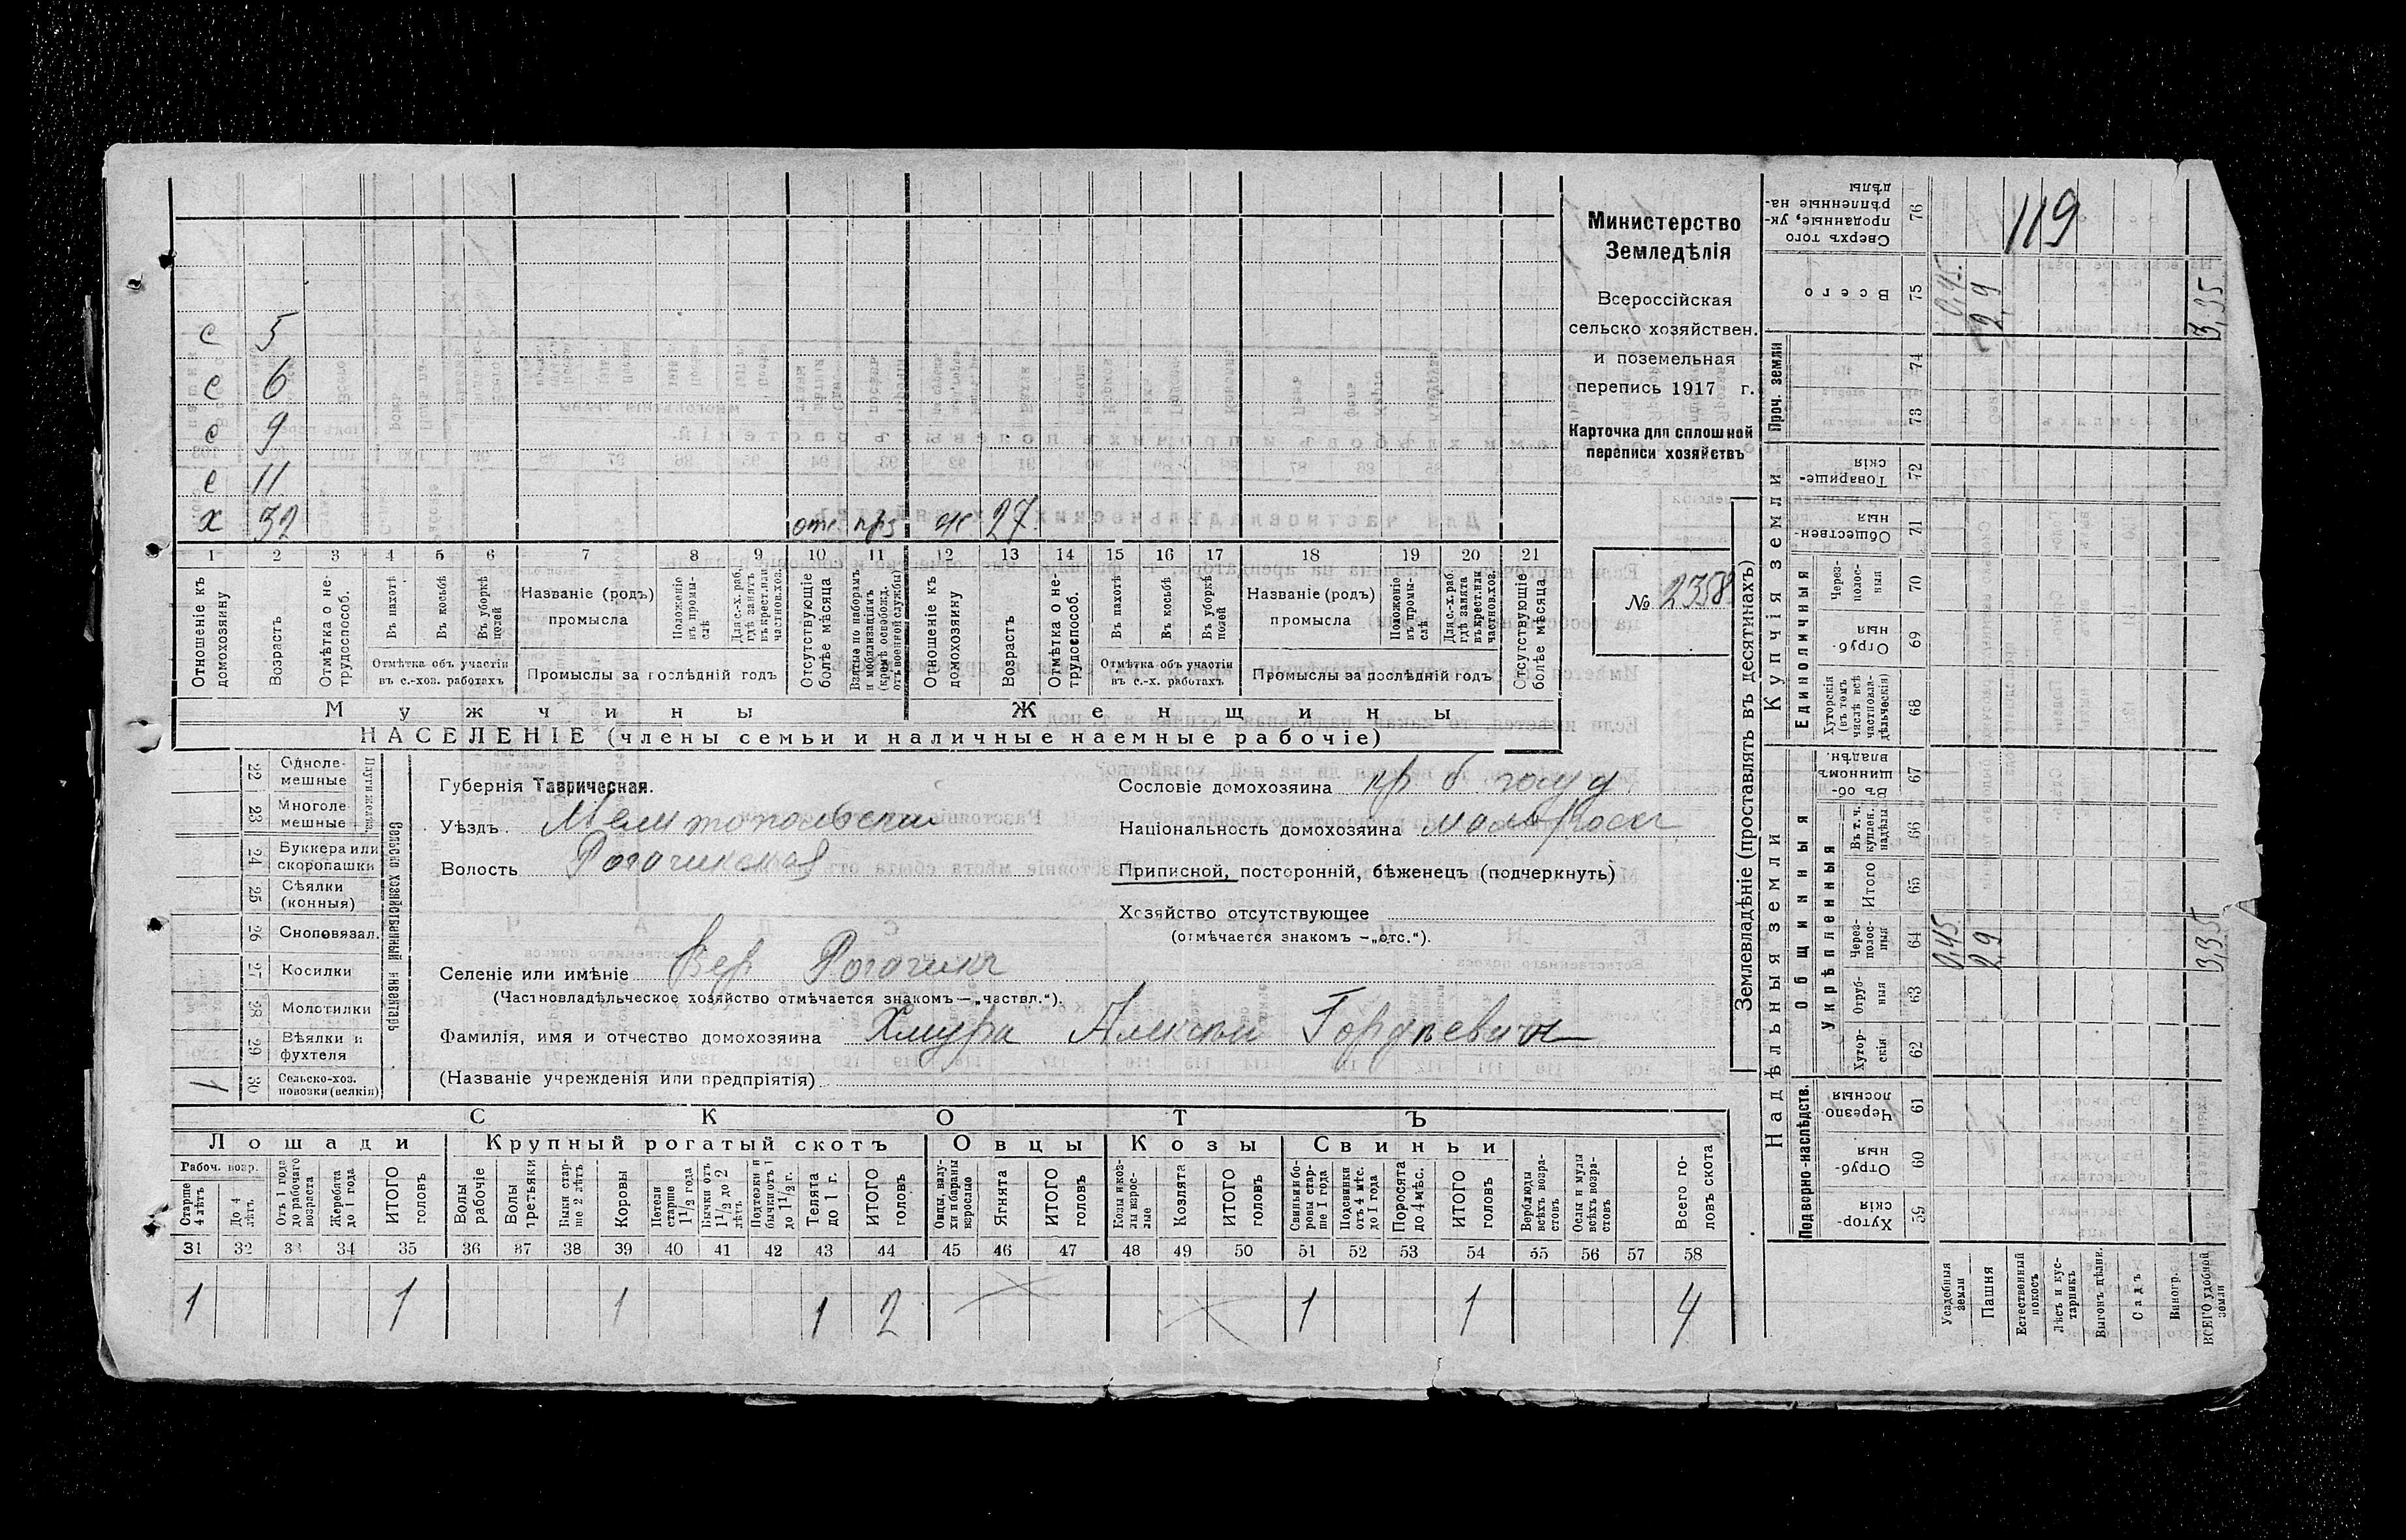 119
Министерство
Земледѣлія
Всероссійская
сельско хозяйствен.
и поземельная
перепись 1917 г.
Карточка для сплошной
переписи хозяйствъ
№ 2358
с 5
с 6
с 9
с 11
х 32 отс. ж 27
1 2 3 4 5 6 7 8 9 10 11 12 13 14 15 16 17 18 19 20 21
Отношеніе къ домохозяину
Возрастъ
Отмѣтка о не-трудоспособ.
Въ пахотѣ
Въ косьбѣ
Въ уборкѣ полей
Отмѣтка объ участіи
въ с.-хоз. работахъ
Названіе (родъ)
промысла
Положеніе въ промы-слѣ
Для с.-х. раб. гдѣ занятъ въ крест. или частнов. хоз.
Промыслы за послѣдній годъ
Отсутствующіе болѣе мѣсяца
Взятые по наборамъ и мобилизаціямъ (кромѣ освобожд. отъ военной службы)
Отношеніе къ домохозяину
Возрастъ
Отмѣтка о не-трудоспособ.
Въ пахотѣ
Въ косьбѣ
Въ уборкѣ полей
Отмѣтка объ участіи
въ с.-х. работахъ
Названіе (родъ)
промысла
Положеніе въ промы-слѣ
Для с.-х. раб. гдѣ занята въ крест. или частнов. хоз.
Промыслы за послѣдній годъ
Отсутствующіе болѣе мѣсяца
Мужчины Женщины
НАСЕЛЕНІЕ (члены семьи и наличные наемные рабочіе)
Сельско хозяйственный инвентарь
22 Одноле-мешные
23 Многоле-мешные
24 Буккера или скоропашки
25 Сѣялки (конныя)
26 Сноповязал.
27 Косилки
28 Молотилки
29 Вѣялки и фухтеля
1 30 Сельско-хоз. повозки (всякія)
Губернія Таврическая.
Уѣздъ Мелитопольскій
Волость Рогачикская
Селеніе или имѣніе Вер Рогачикъ
(Частновладѣльческое хозяйство отмѣчается знакомъ—„частвл.“).
Фамилія, имя и отчество домохозяина Хмура Алексѣй Гордѣевичъ
(Названіе учрежденія или предпріятія)
Сословіе домохозяина кр б
Національность домохозяина
Приписной, посторонній, бѣженецъ (подчеркнуть)
Хозяйство отсутствующее
(отмѣчается знакомъ —„отс.“).
СКОТЪ
Лошади Крупный рогатый скотъ Овцы Козы Свиньи
Рабоч. возр.
Старше 4 лѣтъ
До 4 лѣтъ
Отъ 1 года до рабочаго возраста
Жеребята до 1 года
ИТОГО головъ
Волы рабочіе
Волы третьяки
Быки стар-ше 2 лѣтъ
Коровы
Нетели старше 1 1/2 года
Бычки отъ 1 1/2 до 2 лѣтъ
Подтелки и бычки отъ 1 до 1 1/2 г.
Телята до 1 г.
ИТОГО головъ
Овцы, валу-хи и бараны взрослые
Ягнята
ИТОГО головъ
Козы и коз-лы взрос-лые
Козлята
ИТОГО головъ
Свиньи и бо-ровы стар-ше 1 года
Подсвинки отъ 4 мѣс. до 1 года
Поросята до 4 мѣс.
ИТОГО головъ
Верблюды всѣхъ возра-стовъ
Ослы и мулы всѣхъ возра-стовъ
Всего го-ловъ скота
31 32 33 34 35 36 37 38 39 40 41 42 43 44 45 46 47 48 49 50 51 52 53 54 55 56 57 58
1 1 1 1 2 1 1 4
Землевладѣніе (проставлять въ десятинахъ)
Купчія земли
Надѣльныя земли
Сверхъ того проданные, ук-рѣпленные на-дѣлы 76
Всего 75 0,45 2,9 3,35
Проч. земли 74 73
Товарище-скія 72
Обществен-ныя 71
Единоличныя
Через-полос-ныя 70
Отруб-ныя 69
Хуторскія (въ томъ числѣ всѣ частновла-дѣльческія) 68
Общинныя
Въ об-щинномъ владѣн. 67
Укрѣпленныя
Въ т. ч. куплен. надѣлы 66
Итого 65
Через-полос-ныя 64 0,45 2,9 3,35
Отруб-ныя 63
Хутор-скія 62
Подворно-наслѣдств.
Черезпо-лосныя 61
Отруб-ныя 60
Хутор-скія 59
Усадебныя земли
Пашня
Естественный покосъ
Лѣсъ и кус-тарникъ
Выгонъ дѣлин.
Садъ
Виногр.
ВСЕГО удобной земли